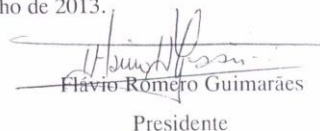 ho de 2013.
Flávio Romero Guimarães
Presidente